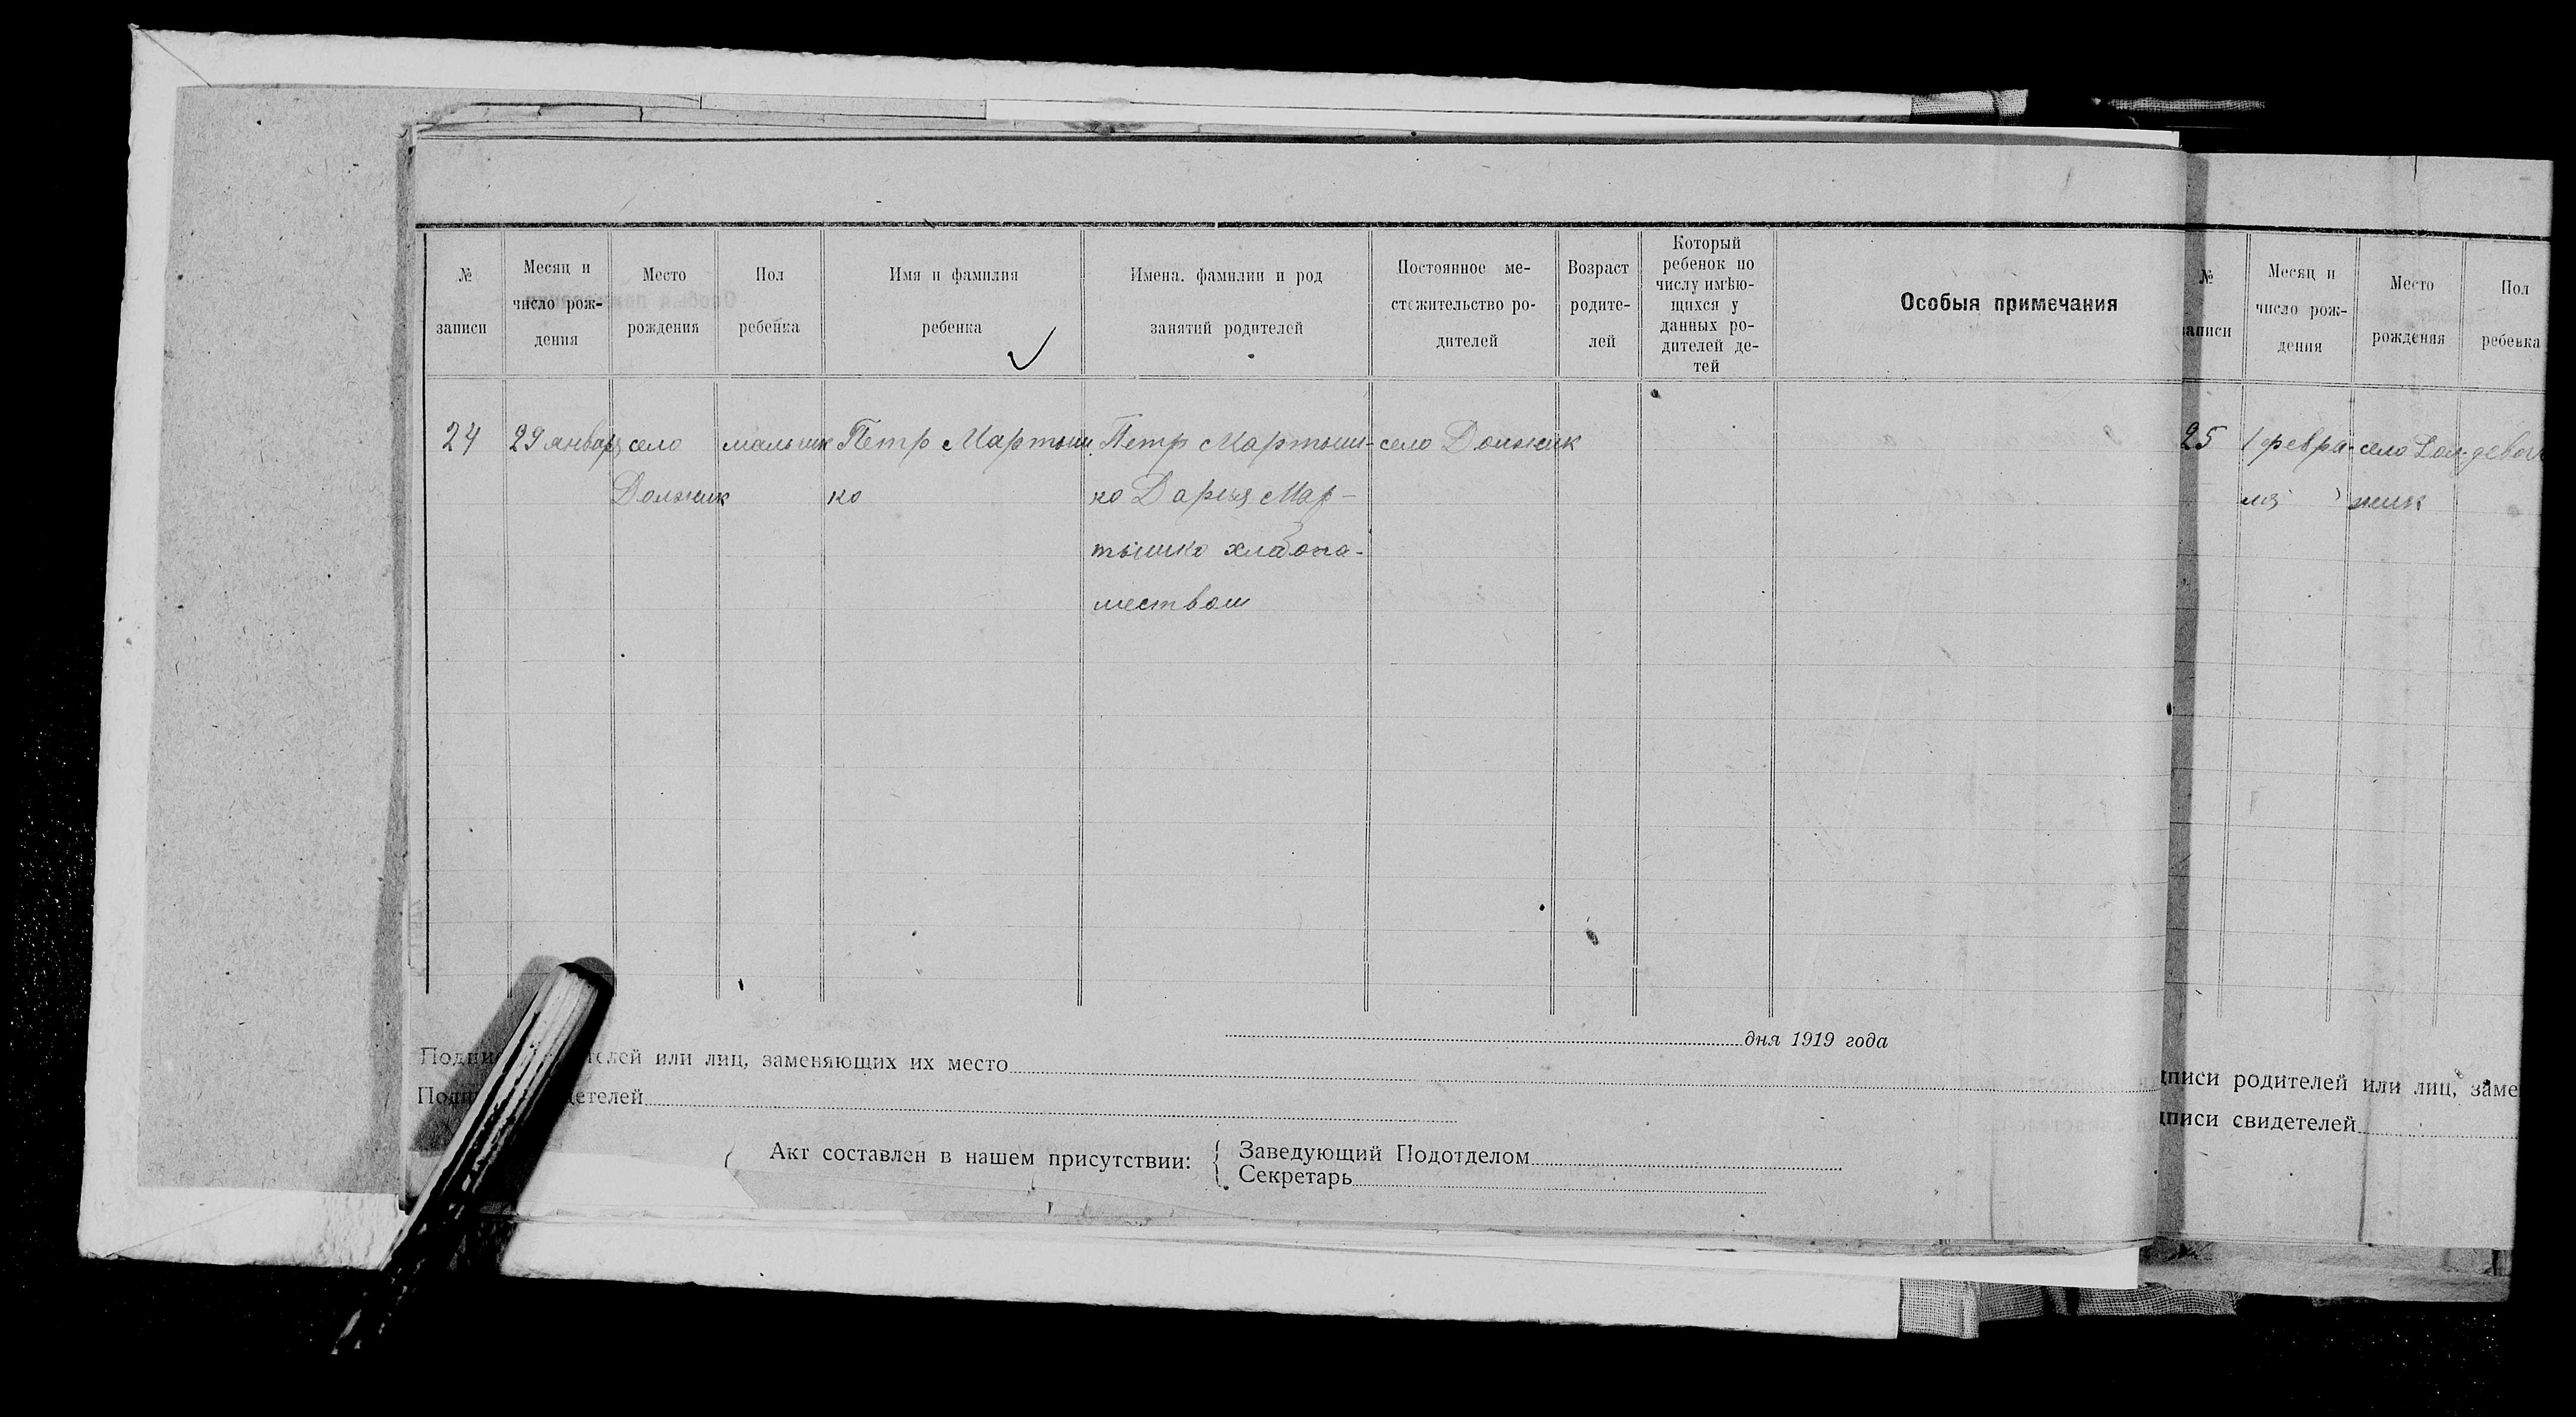 № записи
Месяц и число рождения
Место рождения
Пол ребенка
Имя и фамилия ребенка
Имена. фамилии и род занятий родителей
Постоянное местожительство родителей
Возраст родителей
Который ребенок по числу имѣющихся у данных родителей детей
Особыя примечания
24 29 январ село мальчик Петр Мартыш Петр Мартыш- село Должик
Должик ко ко Дария Мар-
тышко
еством
дня 1919 года
телей или лиц, заменяющих их место
детелей
Акт составлен в нашем присутствии:
Заведующий Подотделом
Секретарь
№ записи
Месяц и число рождения
Место рождения
Пол ребенка
25 1 февра- село Дол- девоч
ля жик
писи родителей или лиц, заме
писи свидетелей